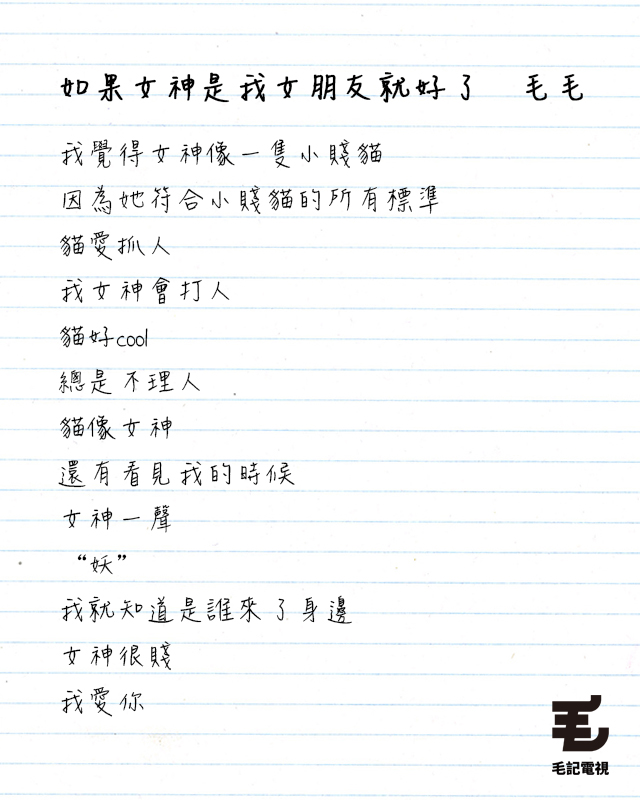 如果女神是我女朋友就好了　毛毛
我覺得女神像一隻小賤貓
因為她符合小賤貓的所有標準
貓愛抓人
我女神會打人
貓好cool
總是不理人
貓像女神
還有看見我的時候
女神一聲
“妖”
我就知道是誰來了身邊
女神很賤
我愛你
毛記電視